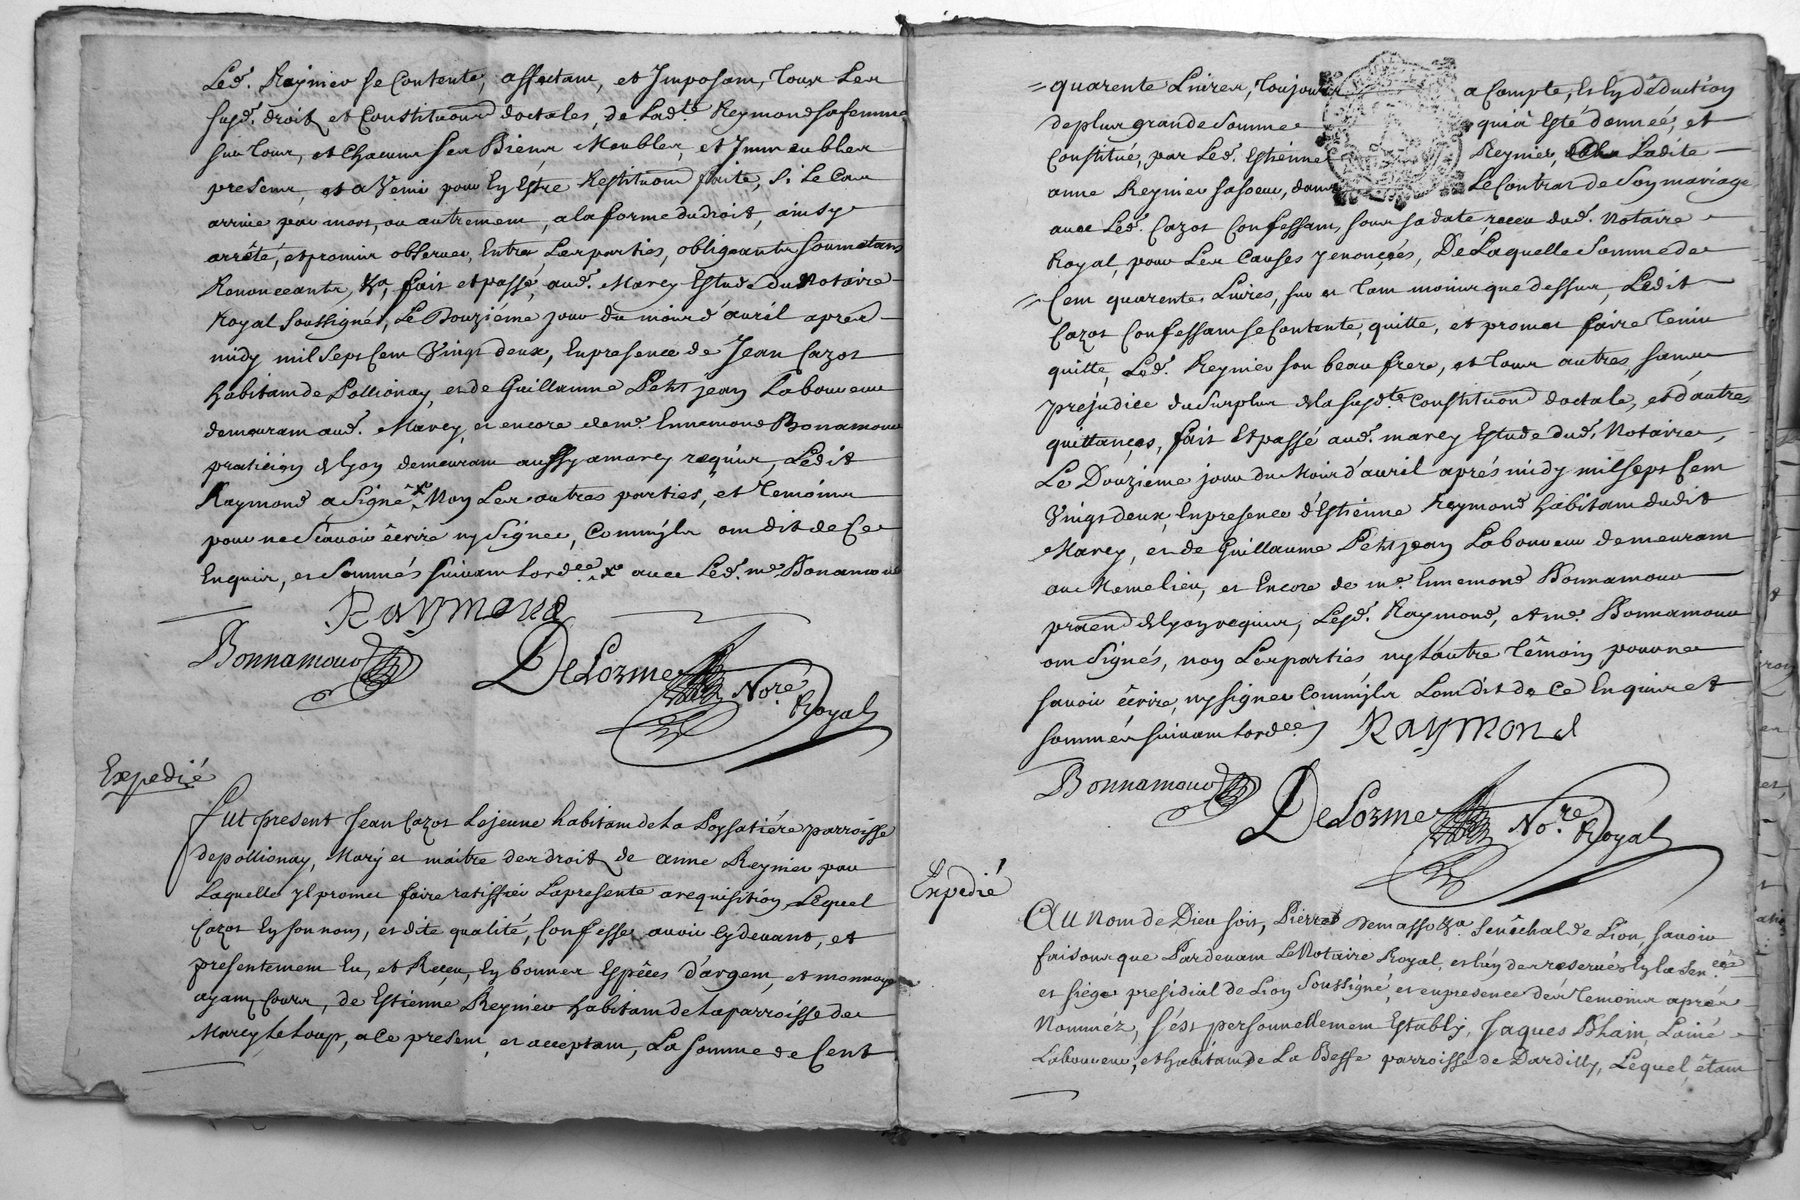 Led. Reynier se Contente, affectant, et Imposant, Tous Les
susd. droits et Constitutions doctales, de Lad.te Reymond sa femme
sur Tous, et Chacuns ses Biens Meubles, et Immeubles
presens, et a Venir pour En Estre Restitution faite, si Le Cas
arrive par mort, ou autrement, a la forme du droit, ainsy
arrêté, et promis observer, Entre Les parties, obligeants soumetans
Renonceants, &a, fait et passé, aud. Marcy Estude du Notaire
Royal soussigné, Le Douzieme jour du mois d'avril apres
midy mil sept Cent Vingt deux, En presence de Jean Cazot
habitant de Pollionay, et de Guillaume Petit jean Laboureur
demeurant aud. Marcy, et encore de me. Ennemond Bonamour
praticien de lyon demeurant aussy a marcy requis, Ledit
Raymond a signé x Non Les autres parties, et Temoins
pour ne sçavoir êcrire ny signer, Comm'ils ont dit de Ce
Enquis, et Sommés suivant lord.ce x avec Led. me. Bonamour
Raymond
Bonnamour
DeLorme No.re Royal
Expedié
Fut present Jean Cazot Lejeune habitant de La Poysatiére parroisse
de pollionay, Mary et maitre des droits de anne Reynier par
Laquelle yl promet faire ratiffier La presente a requisition, Lequel
Cazot En son nom, et dite qualité, Confesse avoir cy devant, et
presentement Eu, et Receu, En bonnes Espêces d'argent, et monnoye
ayant Cours, de Estienne Reynier habitant de La parroisse de
Marcy le Loup, a Ce present, et acceptant, La somme de Cent
= quarente Livres, Toujours a Compte, et En déduction
de plus grande Somme qui a Esté donneé, et
Constitué, par Led. Estienne Reynier, a Ladite
anne Reynier sa soeur, dans Le Contrat de son mariage
avec Led. Cazot Confessant, sous sa date, receu dud. Notaire
Royal, pour Les Causes y enoncées, De Laquelle Somme de
= Cent quarente Livres, sur et Tant moins que dessus, Ledit
Cazot Confessant se Contente, quitte, et promet faire Tenir
quitte, Led. Reynier son beau frere, et Tous autres, sans
prejudice du Surplus de la susd.te Constitution doctale, et d'autres
quittances, fait Et passé aud. marcy Estude dud. Notaire,
Le Douzieme jour du Mois d'avril aprés midy mil sept Cent
Vingt deux, En presence d'Estienne Reymond habitant dudit
Marcy, et de Guillaume Petit jean Laboureur demeurant
au Meme lieu, et Encore de me. Ennemond Bonnamour
praten de lyon requis, Lesd. Raymond, et me. Bonnamour
ont signés, non Les parties ny l'autre Têmoin pour ne
savoir êcrire, ny signer Comm'ils L'ont dit de Ce Enquis et
sommés suivant lord.ce Raymond
Bonnamour
DeLorme No.re Royal
Expedié
Au Nom de Dieu soit, Pierre Demasso &a. Senêchal de Lion, savoir
faisons que Pardevant Le Notaire Royal, et l'un des reservés En la Sen.cée
et siége presidial de Lion Soussigné, et en presence des Temoins aprés
Nommez, s'est personnellement Estably, Jaques Blain Lainé
Laboureur, et habitant de La Beffe parroisse de Dardilly, Lequel, êtant